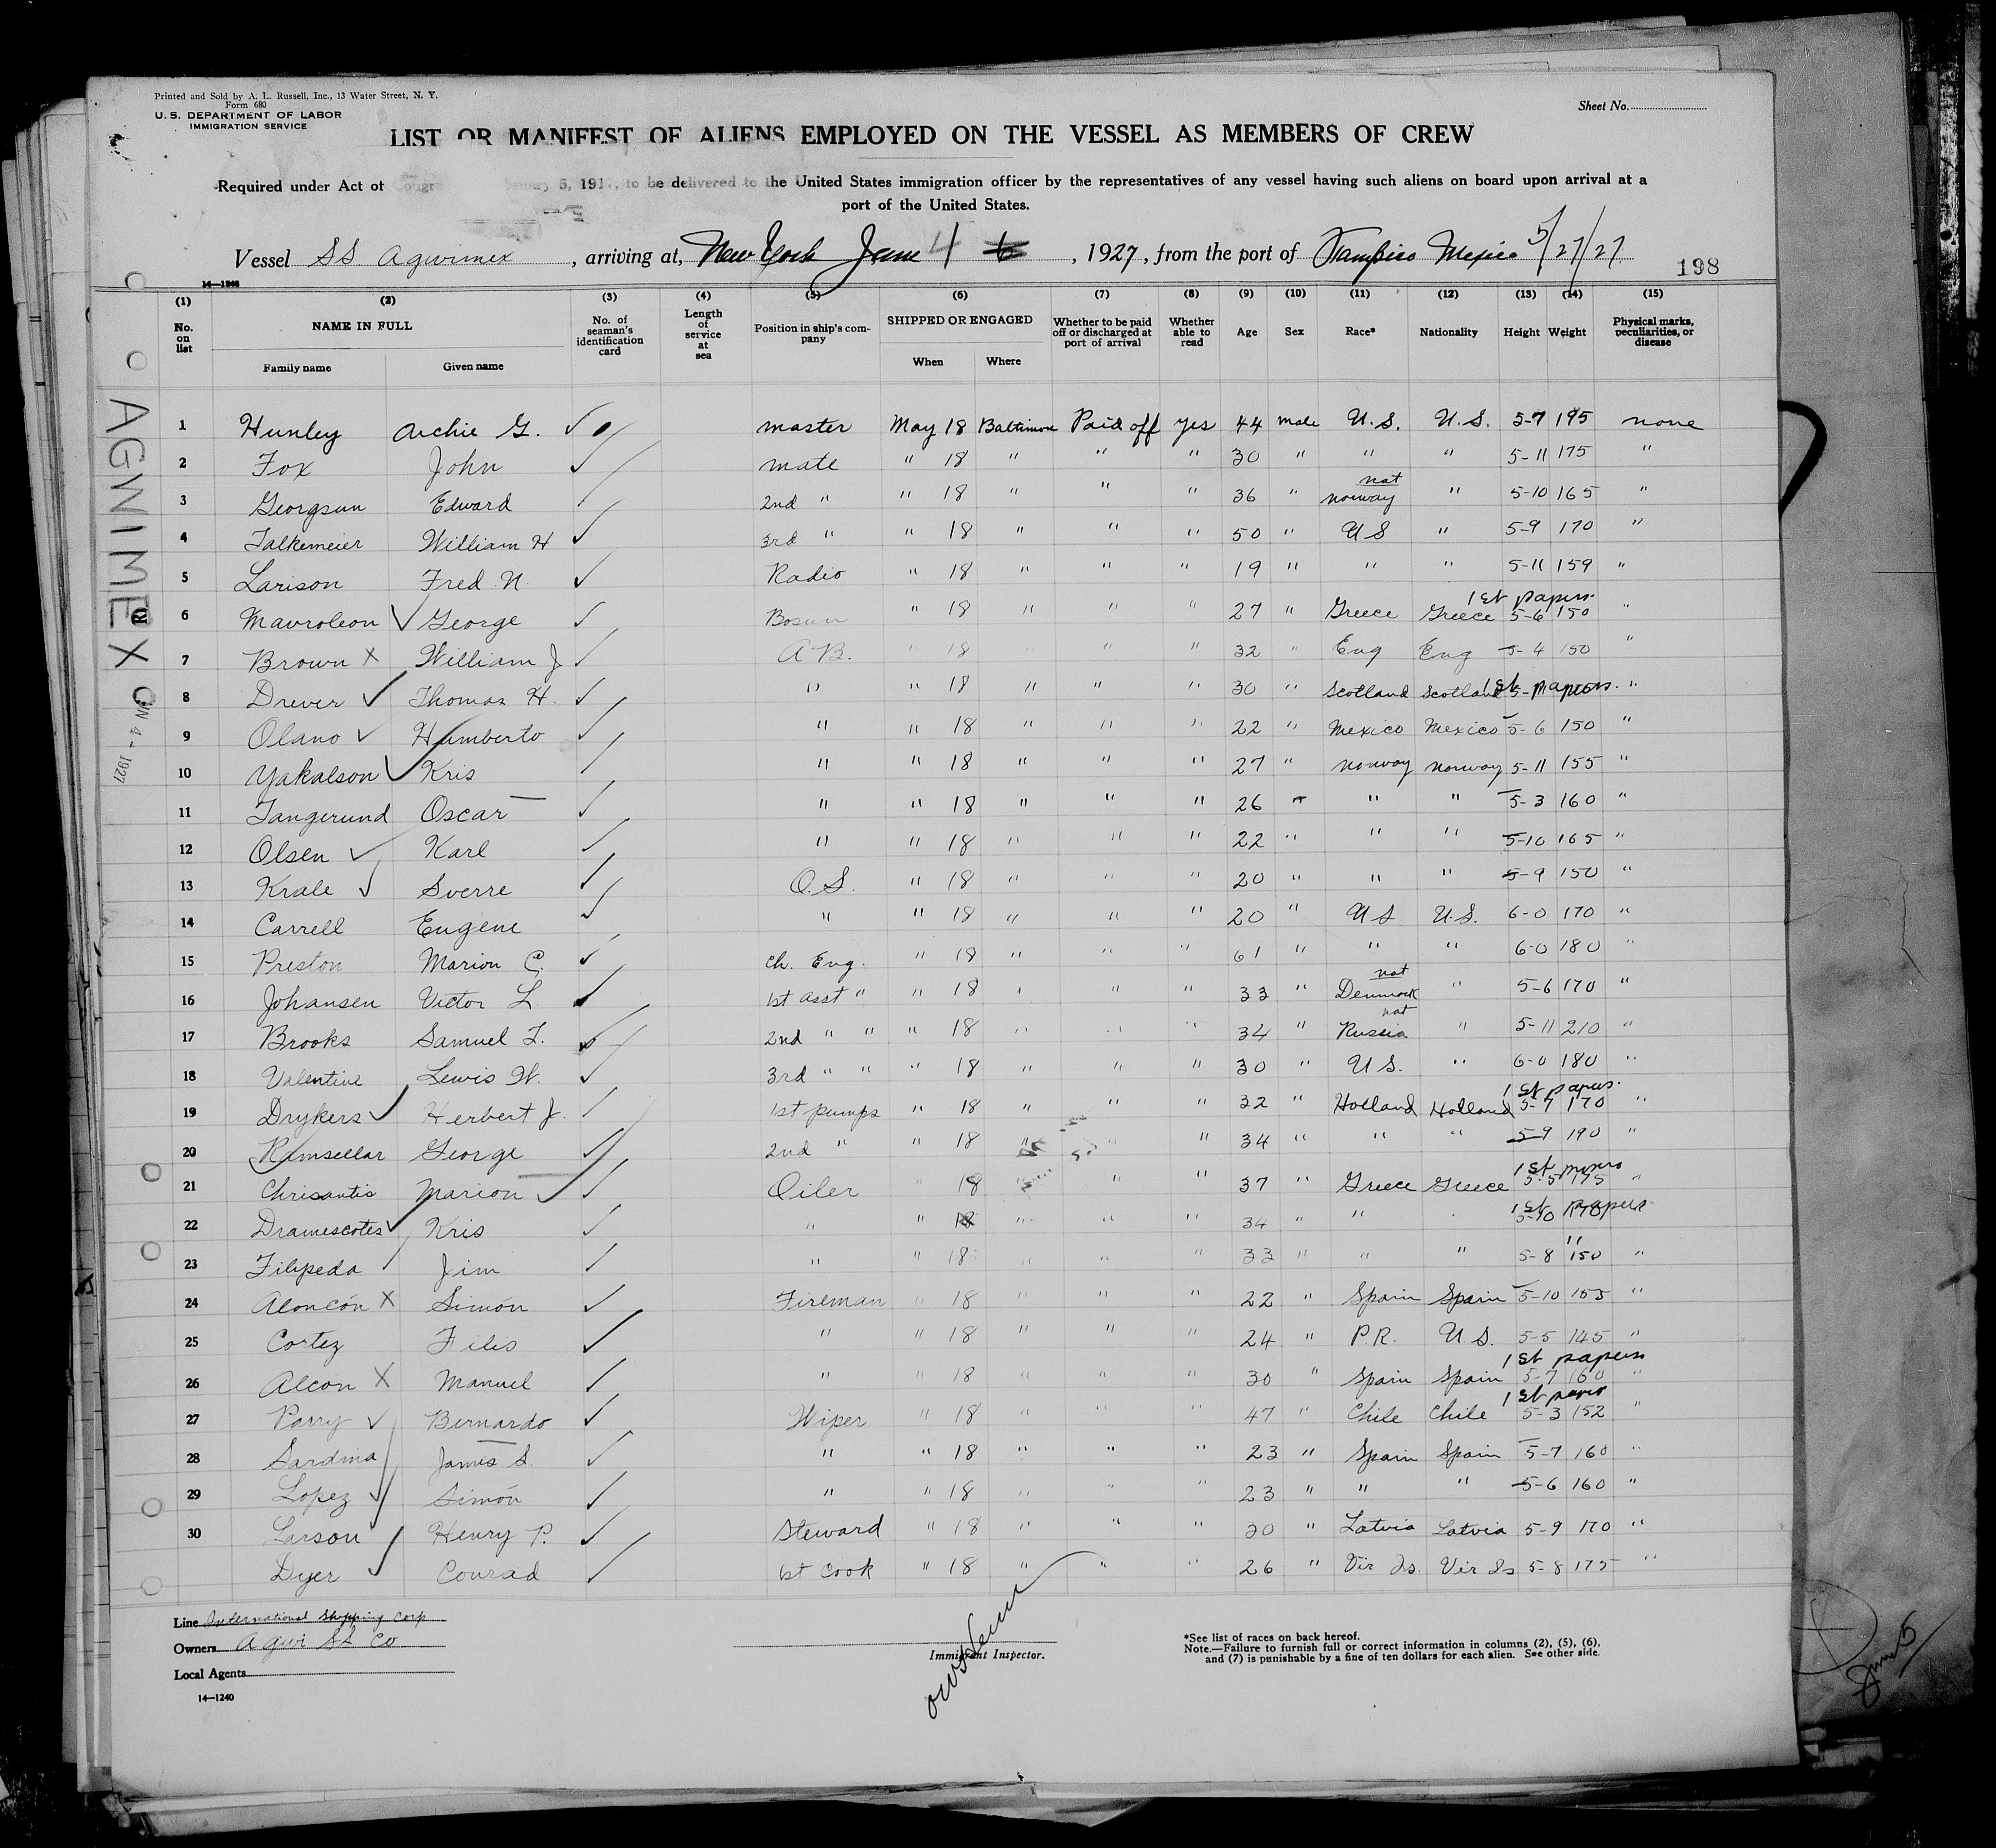 Printed and Sold by A. L. Russell, Inc., 13 Water Street, N. Y.
Form 680
U. S. DEPARTMENT OF LABOR
IMMIGRATION SERVICE
Sheet No.
LIST OR MANIFEST OF ALIENS EMPLOYED ON THE VESSEL AS MEMBERS OF CREW
Required under Act of 5, 191 , to be delivered to the United States immigration officer by the representatives of any vessel having such aliens on board upon arrival at a
port of the United States.
Vessel SS Agwimex, arriving at, New York June 4, 1927, from the port of Tampico Mexico 5/27/27
198
14—1240
(1) (2) (3) (4) (5) (6) (7) (8) (9) (10) (11) (12) (13) (14) (15)
No. on list NAME IN FULL Family name Given name No. of seaman's identification card Length of service at sea Position in ship's company SHIPPED OR ENGAGED When Where Whether to be paid off or discharged at port of arrival Whether able to read Age Sex Race* Nationality Height Weight Physical marks, peculiarities, or disease
1 Hunley Archie G. master May 18 Baltimore Paid off yes 44 male U.S. U.S. 5-7 195 none
2 Fox John mate " 18 " " " 30 " " " 5-11 175 "
3 Georgsun Edward 2nd " " 18 " " " 36 " nat norway " 5-10 165 "
4 Falkemeier William H 3rd " " 18 " " " 50 " U S " 5-9 170 "
5 Larison Fred N. Radio " 18 " " " 19 " " " 5-11 159 "
6 Mavroleon George Bosun " 18 " " " 27 " Greece Greece 1st papers. 5-6 150 "
7 Brown X William J A.B. " 18 " " " 32 " Eng Eng 5-4 150 "
8 Drever Thomas H. " " 18 " " " 30 " Scotland Scotland 1st papers. "
9 Olano Humberto " " 18 " " " 22 " Mexico Mexico 5-6 150 "
10 Yakalson Kris " " 18 " " " 27 " norway norway 5-11 155 "
11 Tangerund Oscar " " 18 " " " 26 " " " 5-3 160 "
12 Olsen Karl " " 18 " " " 22 " " " 5-10 165 "
13 Krale Sverre O.S. " 18 " " " 20 " " " 5-9 150 "
14 Carrell Eugene " " 18 " " " 20 " U S U.S. 6-0 170 "
15 Preston Marion C. ch. Eng. " 18 " " " 61 " " " 6-0 180 "
16 Johansen Victor L. 1st asst " " 18 " " " 33 " nat Denmark " 5-6 170 "
17 Brooks Samuel T. 2nd " " " 18 " " " 34 " nat Russia " 5-11 210 "
18 Valentine Lewis W. 3rd " " " 18 " " " 30 " U.S. " 6-0 180 "
19 Drykers Herbert J. 1st pumps " 18 " " " 32 " Holland Holland 1st papers. 5-7 170 "
20 Ramsellar George 2nd " " 18 " " " 34 " " " 5-9 190 "
21 Chrisantis Marion Oiler " 18 " " " 37 " Greece Greece 1st papers 5-5 175 "
22 Dramescotes Kris " " 18 " " " 34 " " " 1st papers 5-10
23 Filipeda Jim " " 18 " " " 33 " " " " 5-8 150 "
24 Aloncón X Simón Fireman " 18 " " " 22 " Spain Spain 5-10 153 "
25 Cortez Filis " " 18 " " " 24 " P.R. U.S. 5-5 145 "
26 Alcon X Manuel " " 18 " " " 30 " Spain Spain 1st papers 5-7 160 "
27 Parry Bernardo Wiper " 18 " " " 47 " Chile Chile 1st papers 5-3 152 "
28 Sardina James S. " " 18 " " " 23 " Spain Spain 5-7 160 "
29 Lopez Simón " " 18 " " " 23 " " " 5-6 160 "
30 Larson Henry P. Steward " 18 " " " 30 " Latvia Latvia 5-9 170 "
Dyer Conrad 1st cook " 18 " " " 26 " Vir Is. Vir Is 5-8 175 "
AGWIMEX
JUN 4 - 1927
Line International Shipping Corp
Owners Agwi SS Co
Local Agents
14—1240
Immigrant Inspector.
*See list of races on back hereof.
Note.—Failure to furnish full or correct information in columns (2), (5), (6),
and (7) is punishable by a fine of ten dollars for each alien. See other side.
June 5